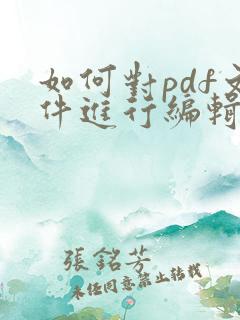 如何對pdf文
件進行編輯
張銘芳
未經同意禁止轉載